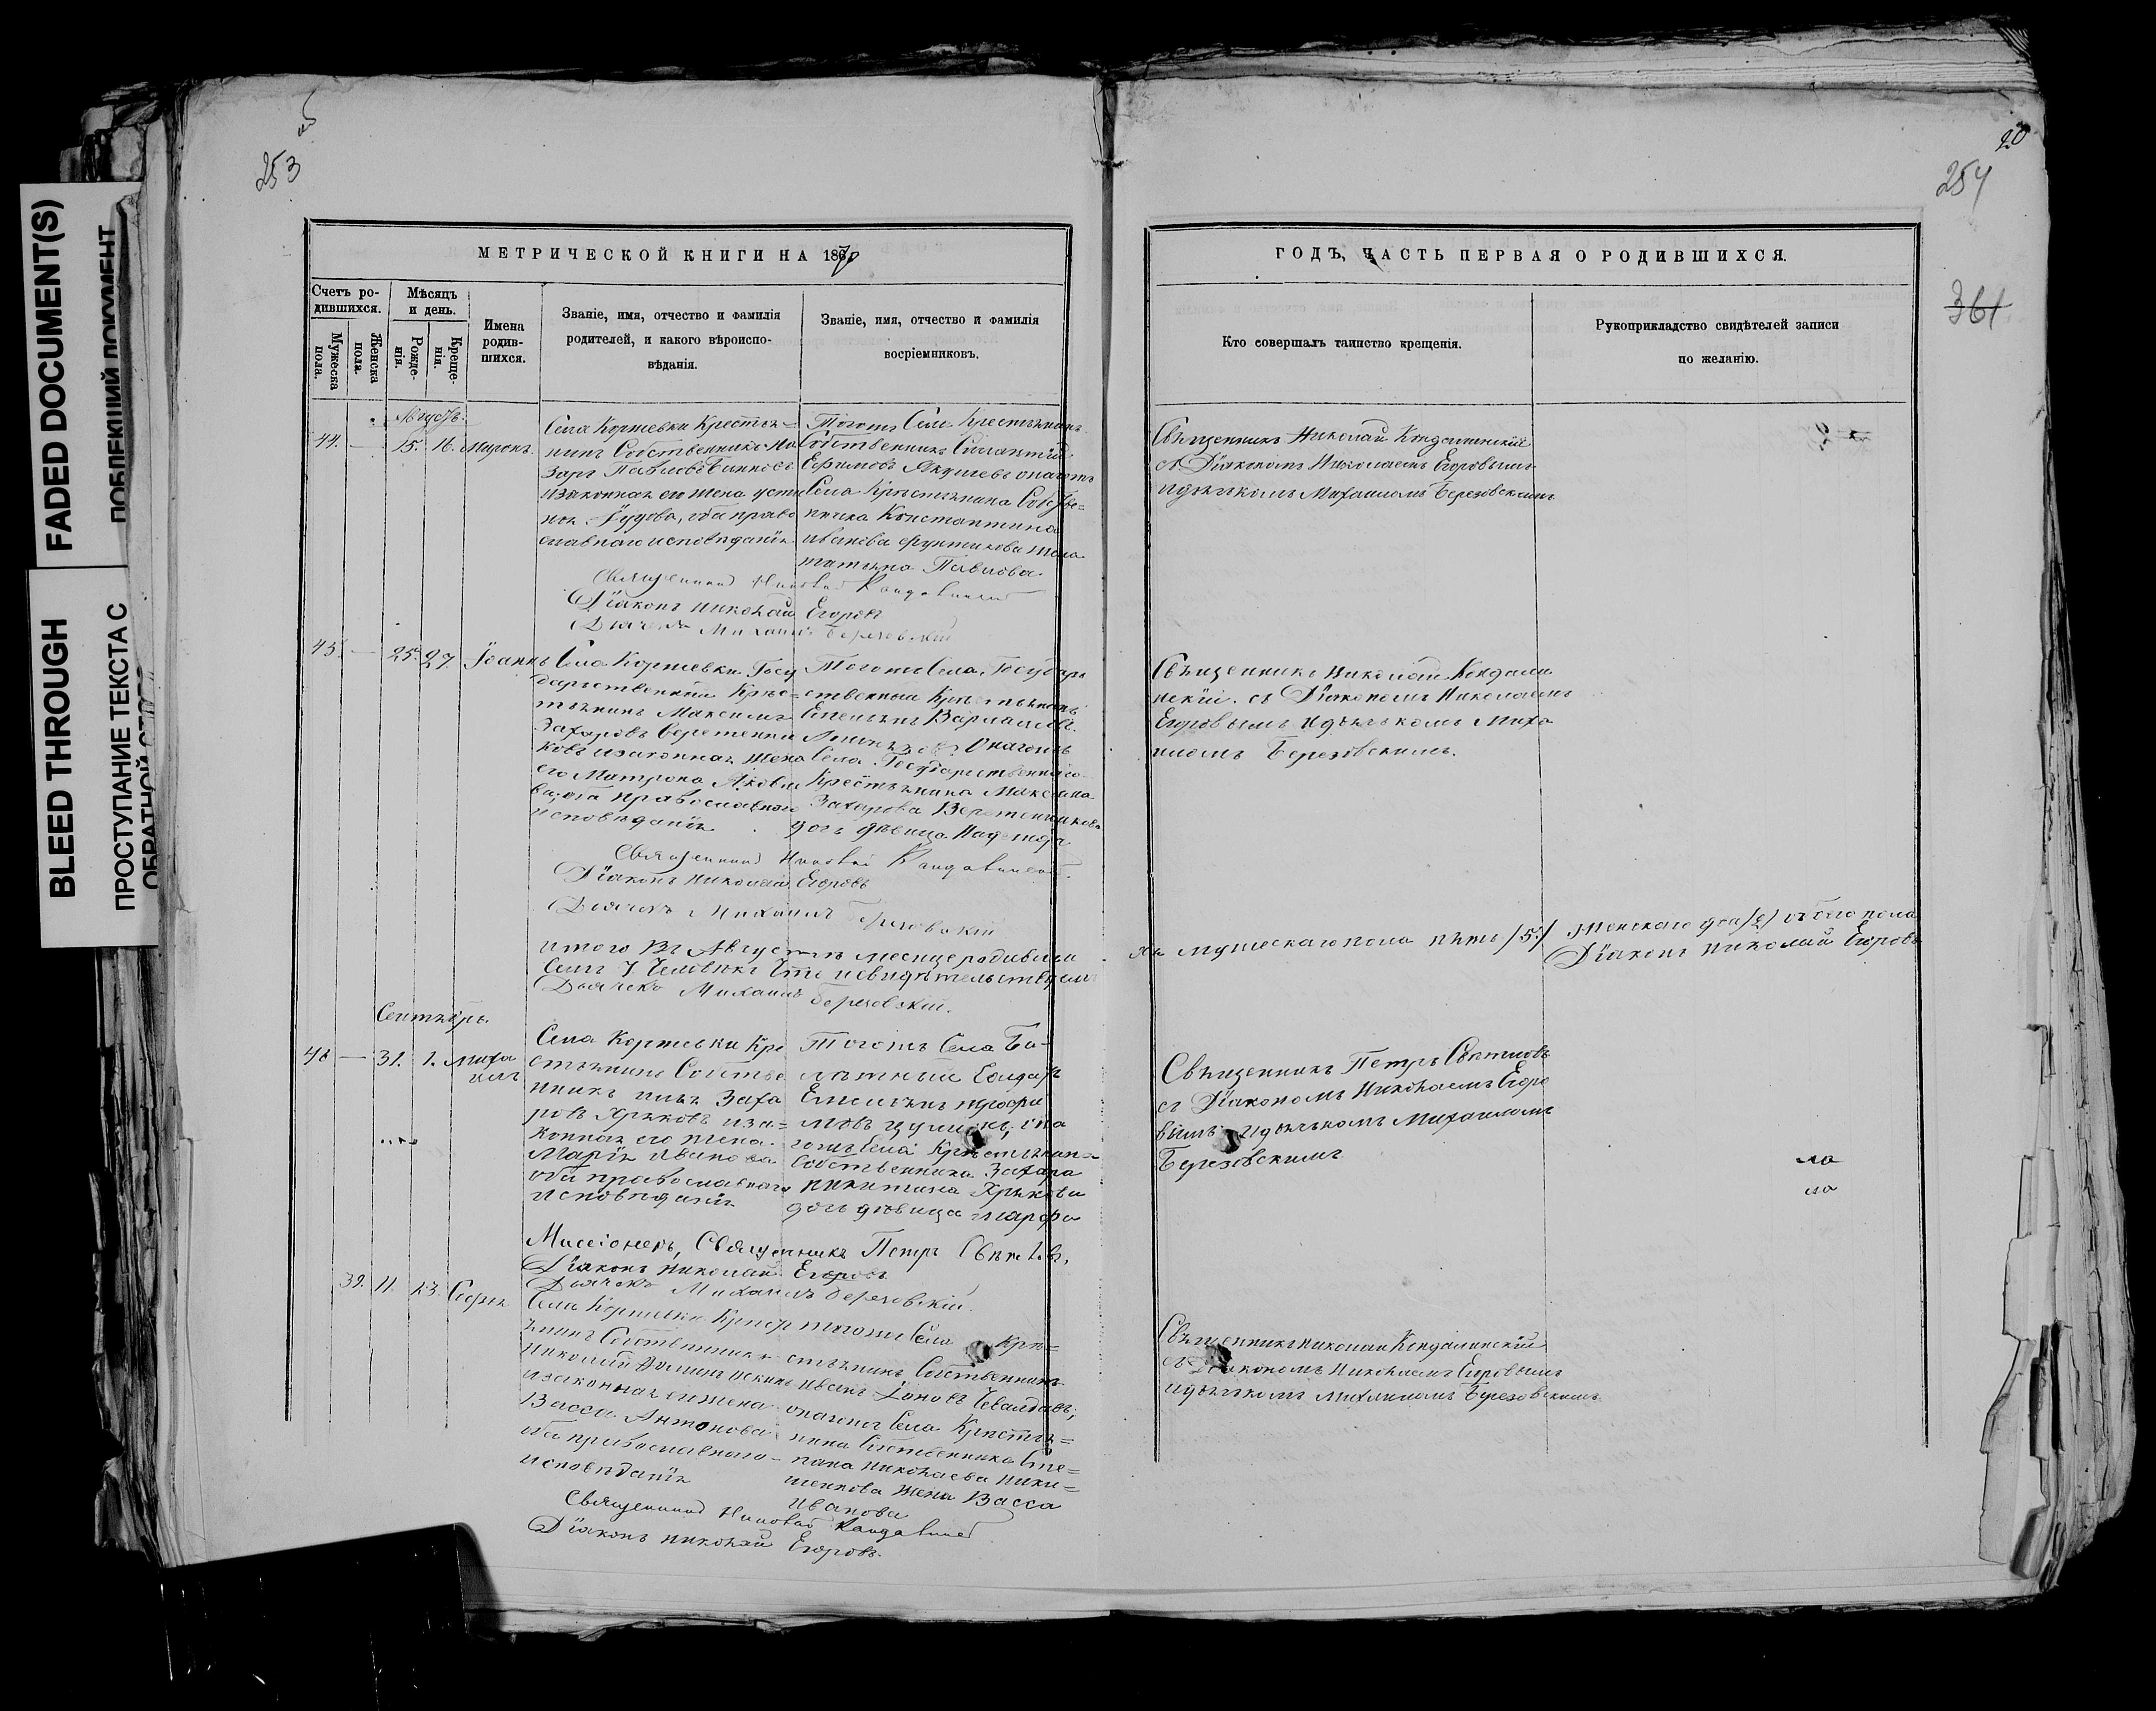 253
20
254
361
FADED DOCUMENT(S)
ПОБЛЕКШИЙ ДОКУМЕНТ
BLEED THROUGH
ПРОСТУПАНИЕ ТЕКСТА С
ОБРАТНОЙ
МЕТРИЧЕСКОЙ КНИГИ НА 1870
Счетъ ро-
дившихся.
Мужеска
пола.
Женска
пола.
Мѣсяцъ
и день.
Рожде-
нія.
Креще-
нія.
Имена
родив-
шихся.
Званіе, имя, отчество и фамилія
родителей, и какого вѣроиспо-
вѣданія.
Званіе, имя, отчество и фамилія
восріемниковъ.
Августъ.
44. — 15. 16. Миронъ.
Села Коржевки Крестья=
нинъ Собственникъ На
заръ Павловъ
изаконная его жена Усти
нья , оба право
славнаго исповѣданія.
Тогожъ Села Крестьянинъ
Собственникъ Силантій
Ефимовъ онагожъ
Села Крестьянина Собстве=
нника Константина
Иванова жена
Татьяна Павлова.
Священникъ Николай Кандалинскій
Діаконъ Николай Егоровъ
Дьячекъ Михаилъ Березовскій
45. — 25. 27. Іоаннъ
Села Коржевки Госу
дарственный Крес=
тьянинъ Максимъ
Захаровъ Веретенни
ковъ изаконная жена
его Матрона Яковле
ва, оба православнаго
исповѣданія
Тогожъ Села Государ
ственный Крестьянинъ
Емельянъ Варламовъ
онагожъ
Села Государственнаго
Крестьянина Максима
Захарова Веретенникова
дочь дѣвица Надежда
Священникъ Николай Кандалинскій
Діаконъ Николай Егоровъ
Дьячекъ Михаилъ Березовскій
Итого въ Августѣ месяце родивши
Дьячекъ Михаилъ Березовскій.
Сентябрь.
46 — 31. 1. Миха
илъ
Села Коржевки Кре
стьянинъ Собстве
нникъ Илья Заха
ровъ Хряковъ иза=
конная его жена
Марія Иванова
оба православнаго
исповѣданія
Тогожъ Села Би-
летный Солдатъ
Емельянъ Трофи
мовъ ; она
гожъ Села Крестьянина
Собственника Захара
Никитина Хрякова
дочь дѣвица Марфа
Миссіонеръ, Священникъ Петръ
Діаконъ Николай Егоровъ
Дьячекъ Михаилъ Березовскій.
39. 11. 13. Софья
Села Коржевки Крест
ьянинъ Собственникъ
Николай
изаконная его жена
Васса Антонова
оба православнаго
исповѣданія
Тогожъ Села Кре=
стьянинъ Собственникъ
Иванъ
онагожъ Села Крестья=
нина Собственника Сте=
пана Николаева Ники=
шенкова жена Васса
Иванова
Священникъ Николай Кандалинскій
Діаконъ Николай Егоровъ.
ГОДЪ, ЧАСТЬ ПЕРВАЯ О РОДИВШИХСЯ.
Кто совершалъ таинство крещенія.
Рукоприкладство свидѣтелей записи
по желанію.
Священникъ Николай Кандалинскій
съ Діакономъ Николаемъ Егоровымъ
идьячкомъ Михаиломъ Березовскимъ
Священникъ Николай Кандали
нскій. съ Діакономъ Николаемъ
Егоровымъ идьячкомъ Миха
иломъ Березовскимъ.
ся мужескаго пола пять /5:/ Женскаго два /2/ обоего пола
Діаконъ Николай Егоровъ
Священникъ Петръ
съ Діакономъ Николаемъ Егоро
вымъ идьячкомъ Михаиломъ
Березовскимъ
Священникъ Николай Кандалинскій
съ Діакономъ Николаемъ Егоровымъ
идьячкомъ Михаиломъ Березовскимъ